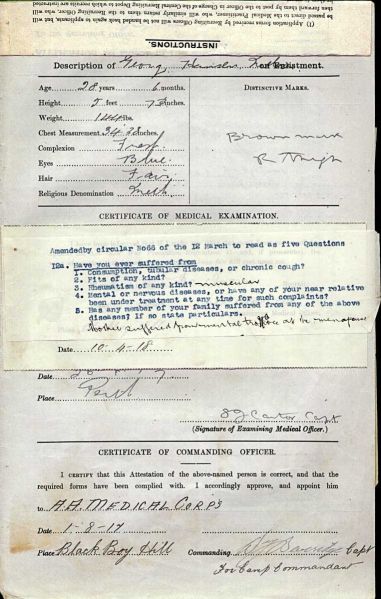 (1) 
passed direct to the Medical Practitioner, who will similarly pass them to the Recruiting Officer, who will
then forward them by post to the Officer in Charge of the Central Recruiting Depot to which recruits are
INSTRUCTIONS.
Description of on Enlistment.
Age 28 years 6 months.
Height 5 feet 7 inches.
Weight 144 lbs.
Chest Measurement 34 38 inches.
Complexion
Eyes Blue
Hair Fair
Religious Denomination Meth
DISTINCTIVE MARKS.
Brown mark
R Thigh
CERTIFICATE OF MEDICAL EXAMINATION.
Amendedby circular No66 of the 12 March to read as five Questions
12a. Have you ever suffered from
1. Consumption, tubular diseases, or chronic cough?
2. Fits of any kind?
3. Rheumatism of any kind? muscular
4. Mental or nervous diseases, or have any of your near relative
been under treatment at any time for such complaints?
5. Has any member of your family suffered from any of the above
diseases? If so state particulars.
Mother suffered from mental at the menopause
Date 10-4-18
Date
Place
Carter Capt
(Signature of Examining Medical Officer.)
CERTIFICATE OF COMMANDING OFFICER.
I CERTIFY that this Attestation of the above-named person is correct, and that the
required forms have been complied with. I accordingly approve, and appoint him
to A.A. MEDICAL CORPS
Date 1-8-17
Place Black Boy Hill Commanding Capt
For Camp Commandant